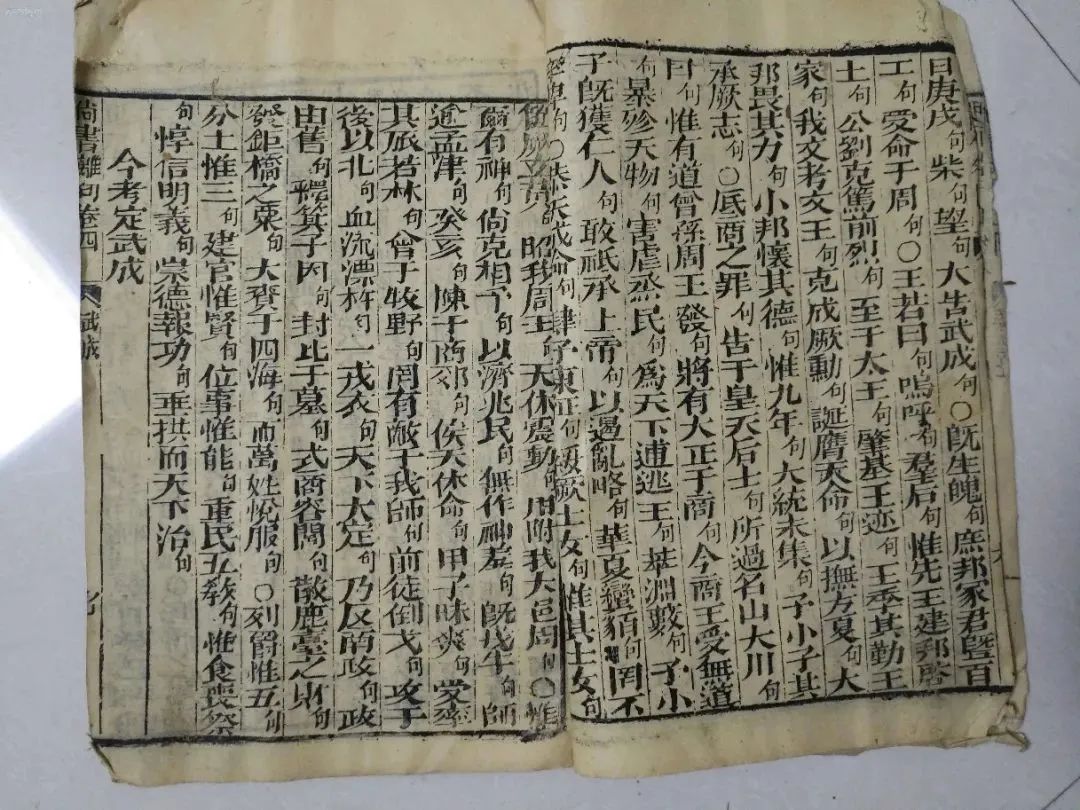 日庚戌句柴句望句大告武成句○既生魄句庶邦冢君暨百
工句受命于周句○王若曰句嗚呼句羣后句惟先王建邦啓
土句公劉克篤前烈句至于太王句肇基王迹句王季其勤王
家句我文考文王句克成厥勳句誕膺天命句以撫方夏句大
邦畏其力句小邦懷其德句惟九年句大統未集句予小子其
承厥志句○底商之罪句告于皇天后土句所過名山大川句
曰句惟有道曾孫周王發句將有大正于商句今商王受無道
句暴殄天物句害虐烝民句為天下逋逃王句萃淵藪句予小
子既獲仁人句敢祇承上帝句以遏亂略句華夏蠻貊句罔不
句○恭天成命句肆予東征句綏厥士女句惟其士女句
昭我周王句天休震動句用附我大邑周句○惟
爾有神句尚克相予句以濟兆民句無作神羞句既戊午句師
逾孟津句癸亥句陳于商郊句俟天休命句甲子昧爽句受率
其旅若林句會于牧野句罔有敵于我師句前徒倒戈句攻于
後以北句血流漂杵句一戎衣句天下大定句乃反商政句政
由舊句釋箕子囚句封比干墓句式商容閭句散鹿臺之財句
發鉅橋之粟句大賚于四海句而萬姓悅服句○列爵惟五句
分土惟三句建官惟賢句位事惟能句重民五教句惟食喪祭
句惇信明義句崇德報功句垂拱而天下治句
今考定武成
尚書離句卷四 武成